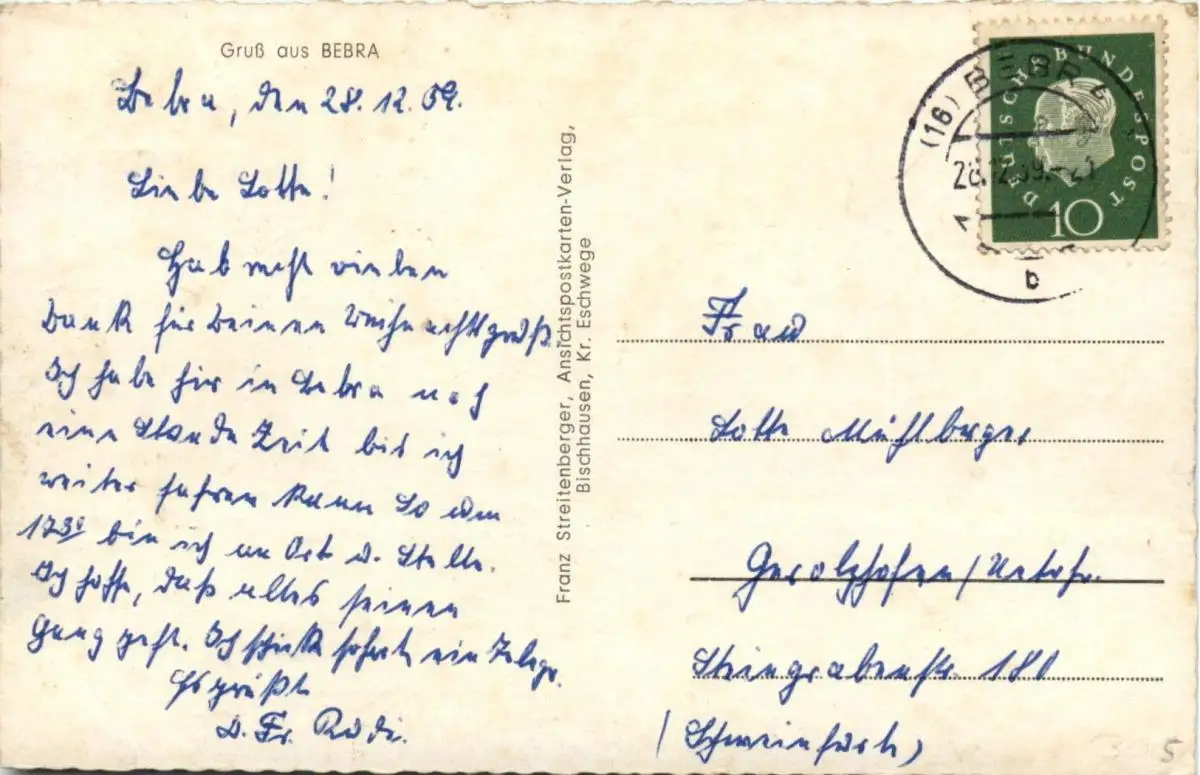 Gruß aus BEBRA
Bebra, den 28.12.59.
Liebe Lotte!
Hab recht vielen
Dank für Deinen Weihnachtsgruß.
Ich habe hier in Bebra noch
eine Stunde Zeit bis ich
weiter fahren kann. So um
17³⁰ bin ich an Ort u. Stelle.
Ich hoffe, daß alles seinen
Gang geht. Ich schick sofort ein Telegr.
Es grüßt
D. Fr. Rudi.
Franz Streitenberger, Ansichtspostkarten-Verlag,
Bischhausen, Kr. Eschwege
(16) BEBRA
28.12.59.-21
b
DEUTSCHE BUNDESPOST
10
Frau
Lotte Mühlberger
Gerolzhofen/Unterfr.
Steingrabenstr. 180
(Schweinfurt)